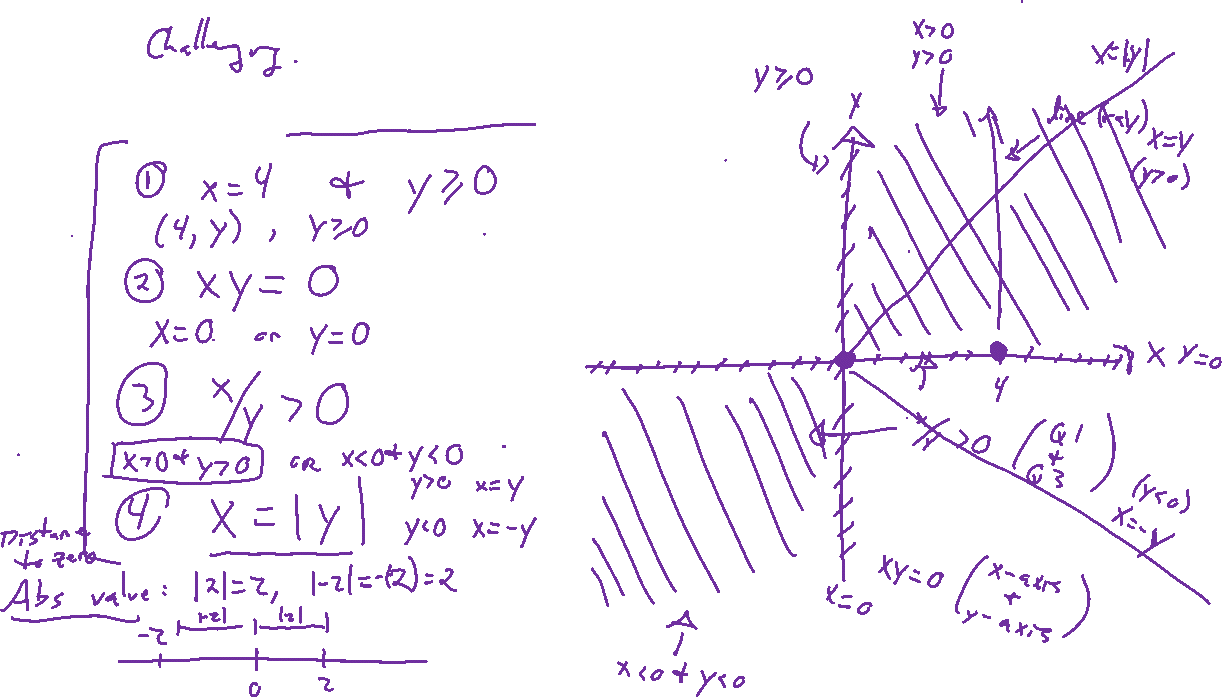 Challenging.
① x = 4 & y ≥ 0
(4, y), y ≥ 0
② xy = 0
x = 0 or y = 0
③ x/y > 0
x>0 & y>0 or x<0 & y<0
y>0 x=y
④ x = |y|
y<0 x=-y
Distance to zero
Abs value: |2|=2, |-2|=-(-2)=2
|-2| |2|
-2 0 2
x>0
y>0
y≥0
x=|y|
y
line (x=y)
x=y
(y>0)
x y=0
4
x/y >0 (Q1 & Q3)
(y<0)
x=-y
xy=0 (x-axis + y-axis)
x=0
x<0 & y<0